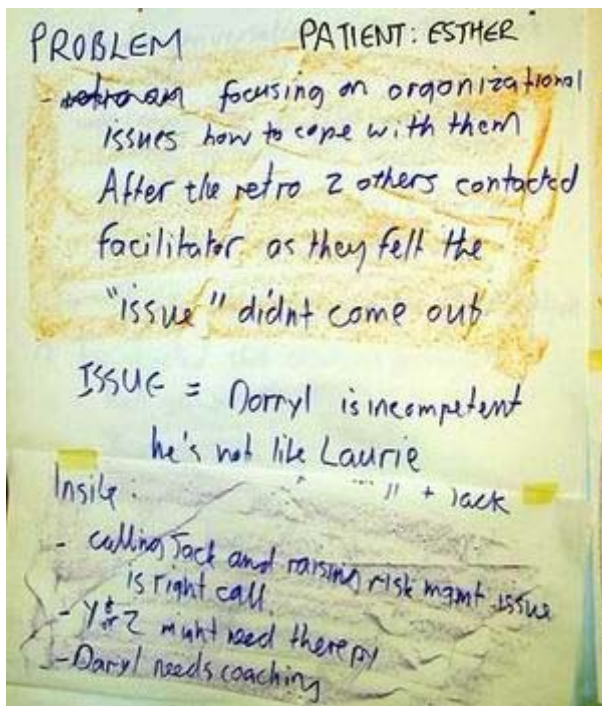 PROBLEM PATIENT: ESTHER
- focusing on organizational
issues how to cope with them
After the retro 2 others contacted
facilitator as they felt the
"issue" didnt come out
ISSUE = Darryl is incompetent
he's not like Laurie
" + Jack
Insite:
- calling Jack and raising risk mgmt issue
is right call.
- Y Z might need therapy
- Daryl needs coaching